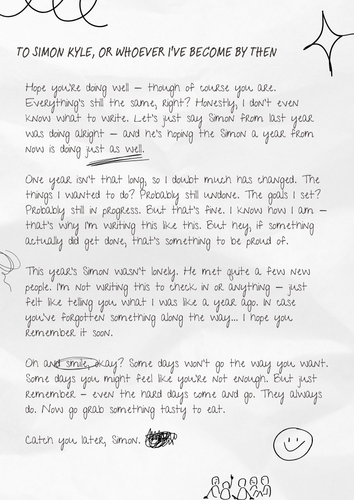 TO SIMON KYLE, OR WHOEVER I'VE BECOME BY THEN
Hope you're doing well – though of course you are.
Everything's still the same, right? Honestly, I don't even
know what to write. Let's just say Simon from last year
was doing alright – and he's hoping the Simon a year from
now is doing just as well.
One year isn't that long, so I doubt much has changed. The
things I wanted to do? Probably still undone. The goals I set?
Probably still in progress. But that's fine. I know how I am –
that's why I'm writing this like this. But hey, if something
actually did get done, that's something to be proud of.
This year's Simon wasn't lonely. He met quite a few new
people. I'm not writing this to check in or anything – just
felt like telling you what I was like a year ago. In case
you've forgotten something along the way... I hope you
remember it soon.
Oh and smile, okay? Some days won't go the way you want.
Some days you might feel like you're not enough. But just
remember – even the hard days come and go. They always
do. Now go grab something tasty to eat.
Catch you later, Simon.